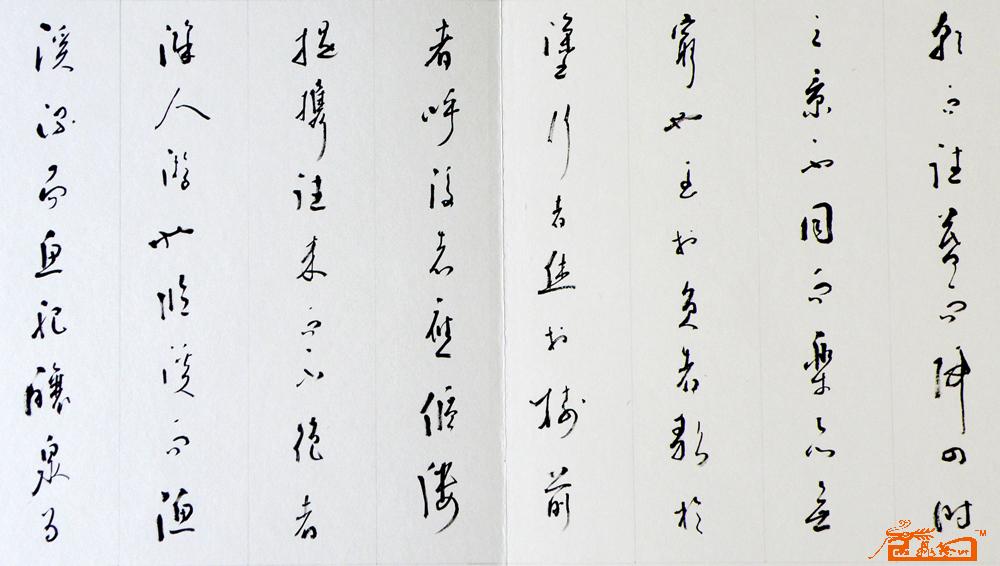 朝而往暮而歸四時
之景不同而樂亦無
窮也至於負者歌於
塗行者休於樹前
者呼後者應傴僂
提攜往來而不絕者
滁人游也臨溪而漁
溪深而魚肥釀泉為